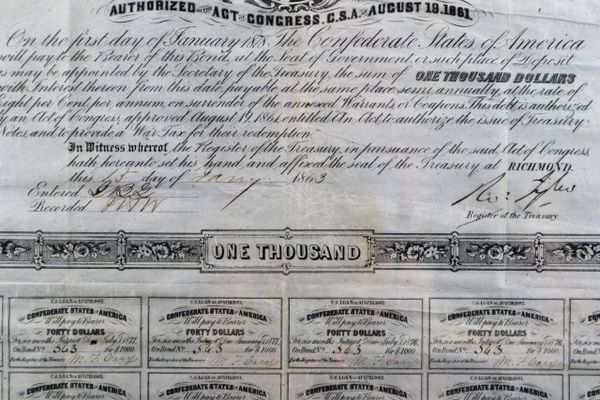 AUTHORIZED BY THE ACT OF CONGRESS, C.S.A. OF AUGUST 19, 1861.
On the first day of January 1878, The Confederate States of America
will pay to the Bearer of this Bond, at the Seat of Government, or such place of Deposit
as may be appointed by the Secretary of the Treasury, the sum of ONE THOUSAND DOLLARS
with Interest thereon from this date, payable at the same place semi annually, at the rate of
Eight per Cent, per annum, on surrender of the annexed Warrants or Coupons. This debt is authorized
by an Act of Congress, approved August 19, 1861, entitled An Act to authorize the issue of Treasury
Notes, and to provide a War Tax for their redemption."
In Witness whereof, the Register of the Treasury, in pursuance of the said, Act of Congress,
hath hereunto set his hand and affixed the seal of the Treasury at RICHMOND,
this day of Jany 1863
Entered
Recorded
Ro: Tyler
Register of the Treasury
ONE THOUSAND
C.S. LOAN OF AUG. 19, 1861. C.S. LOAN OF AUG. 19, 1861. C.S. LOAN OF AUG. 19, 1861. C.S. LOAN OF AUG. 19, 1861.
CONFEDERATE STATES OF AMERICA CONFEDERATE STATES OF AMERICA CONFEDERATE STATES OF AMERICA CONFEDERATE STATES OF AMERICA
Will pay to Bearer Will pay to Bearer Will pay to Bearer Will pay to Bearer
FORTY DOLLARS FORTY DOLLARS FORTY DOLLARS FORTY DOLLARS
For six months Interest Due July 1, 1877, For six months Interest Due January 1, 1877, For six months Interest Due July 1, 1876, For six months Interest Due January 1, 1876,
On Bond No. 563 for $1000. On Bond No. 563 for $1000. On Bond No. 563 for $1000. On Bond No. 563 for $1000.
For the Register of the Treasury For the Register of the Treasury For the Register of the Treasury For the Register of the Treasury
C.S. LOAN OF AUG. 19, 1861. C.S. LOAN OF AUG. 19, 1861. C.S. LOAN OF AUG. 19, 1861. C.S. LOAN OF AUG. 19, 1861.
CONFEDERATE STATES OF AMERICA CONFEDERATE STATES OF AMERICA CONFEDERATE STATES OF AMERICA CONFEDERATE STATES OF AMERICA